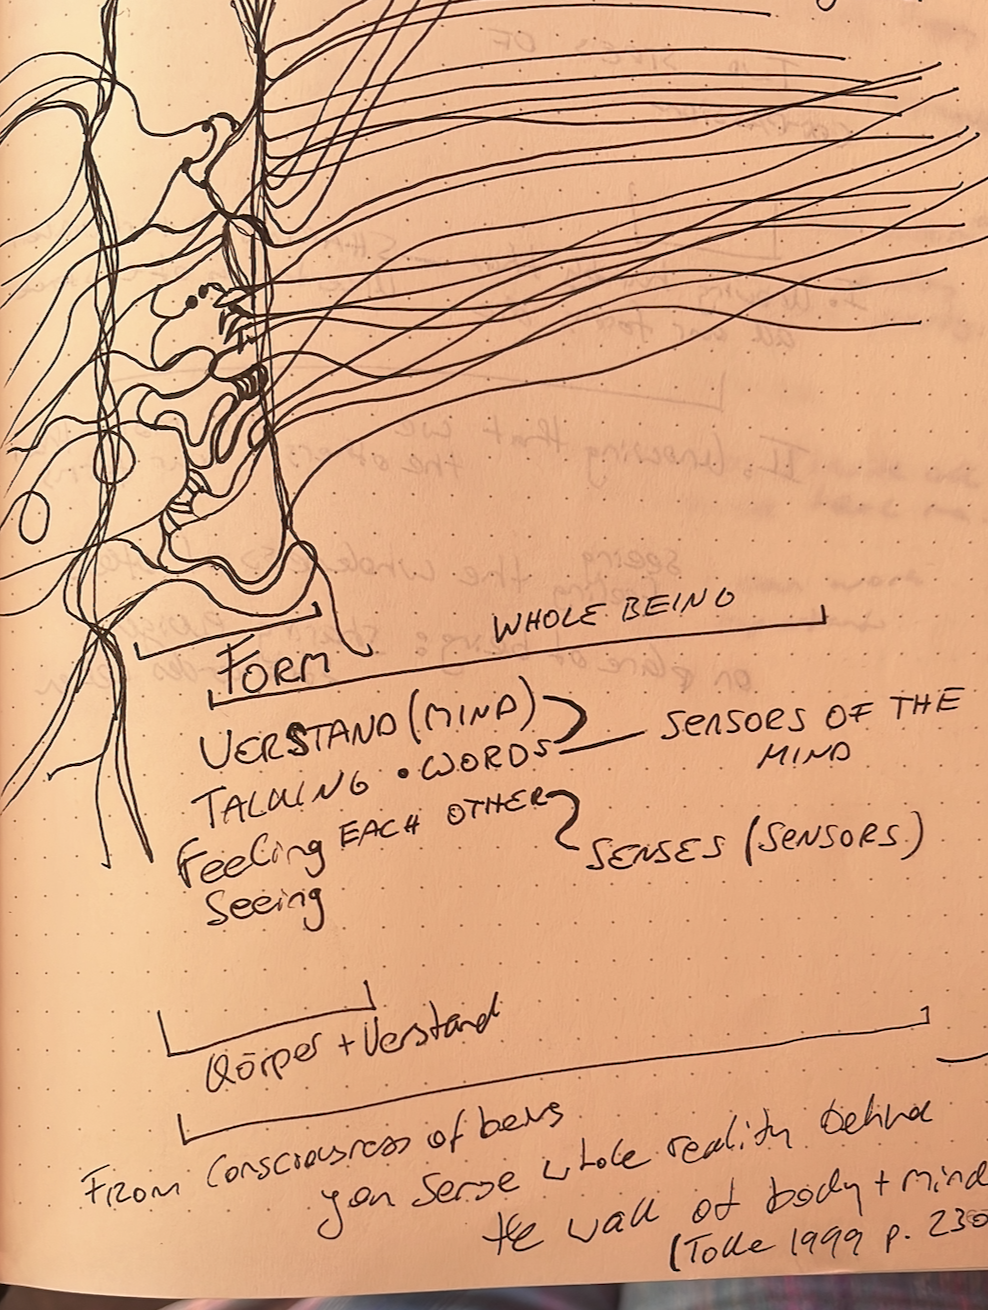 FORM
WHOLE BEING
VERSTAND (MIND)
TALKING • WORDS
SENSORS OF THE
MIND
Feeling EACH OTHER
SENSES (SENSORS)
Seeing
Körper + Verstand
FROM Consciousness of being
you sense whole reality behind
the wall of body + mind
(Tolle 1999 p. 230